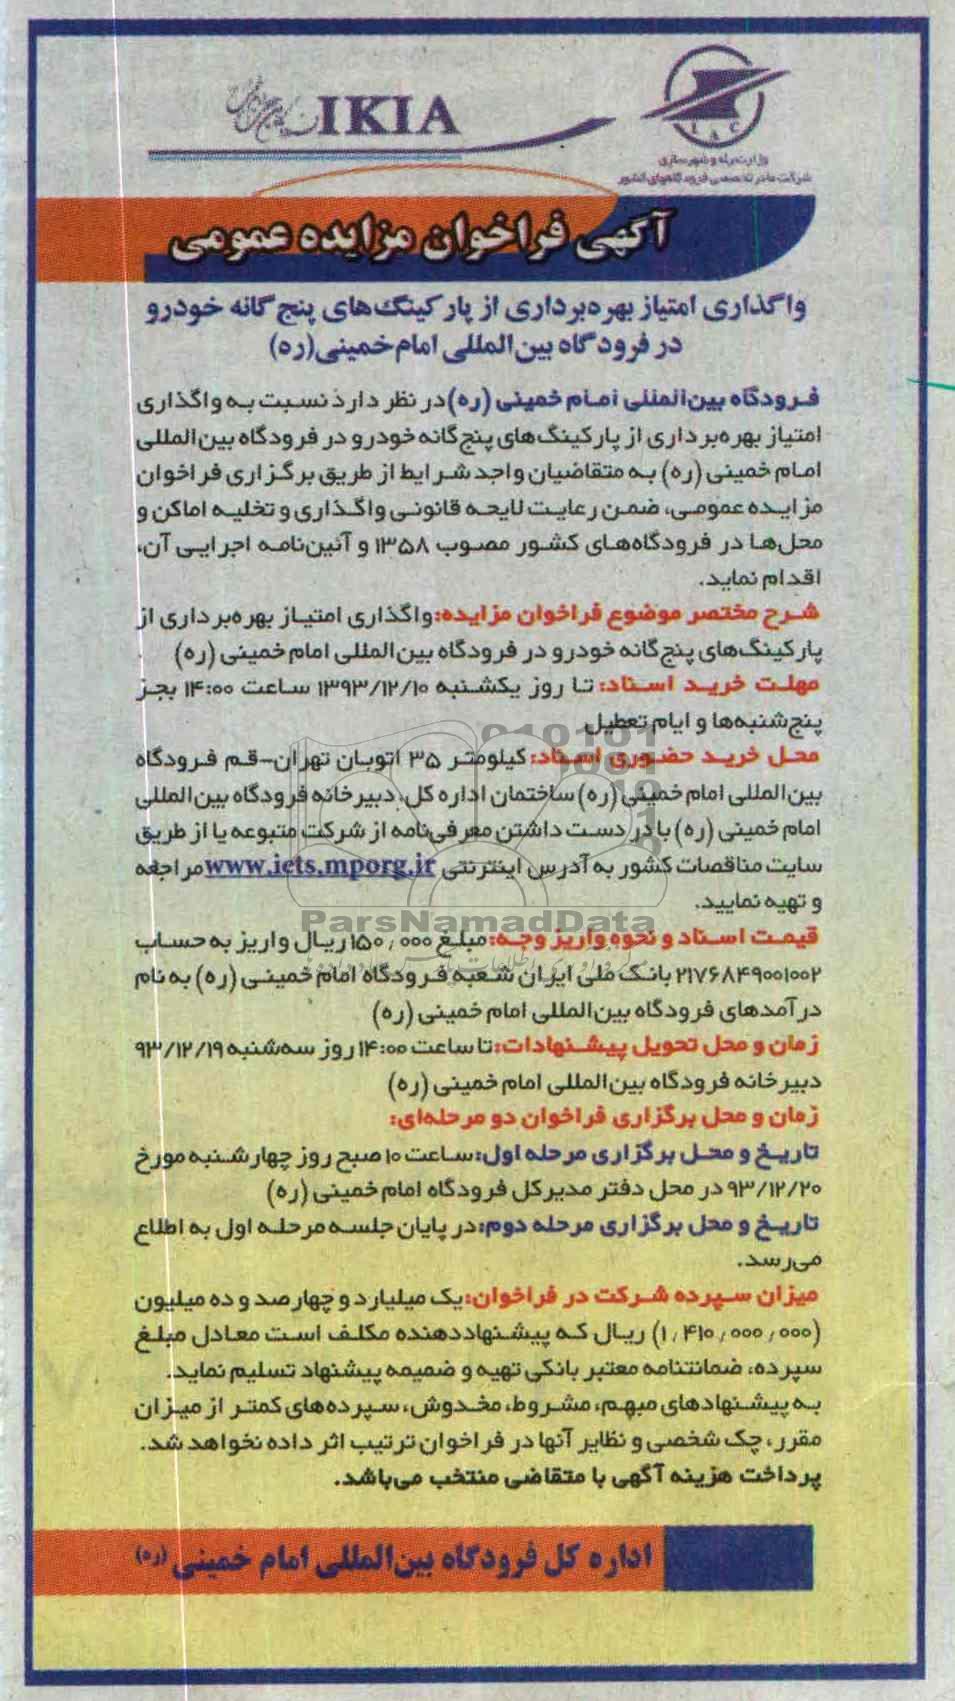 IKIA
IAC
وزارت راه و شهرسازی
شرکت مادر تخصصی فرودگاههای کشور
آگهی فراخوان مزایده عمومی
واگذاری امتیاز بهره‌برداری از پارکینگ‌های پنج گانه خودرو
در فرودگاه بین‌المللی امام خمینی(ره)
فرودگاه بین‌المللی امام خمینی (ره)در نظر دارد نسبت به واگذاری
امتیاز بهره‌برداری از پارکینگ‌های پنج‌گانه خودرو در فرودگاه بین‌المللی
امام خمینی (ره) به متقاضیان واجد شرایط از طریق برگزاری فراخوان
مزایده عمومی، ضمن رعایت لایحه قانونی واگذاری و تخلیه اماکن و
محل‌ها در فرودگاه‌های کشور مصوب ۱۳۵۸ و آئین‌نامه اجرایی آن،
اقدام نماید.
شرح مختصر موضوع فراخوان مزایده:واگذاری امتیاز بهره‌برداری از
پارکینگ‌های پنج‌گانه خودرو در فرودگاه بین‌المللی امام خمینی (ره)
مهلت خرید اسناد: تا روز یکشنبه ۱۳۹۳/۱۲/۱۰ ساعت ۱۴:۰۰ بجز
پنج‌شنبه‌ها و ایام تعطیل
محل خرید حضوری اسناد:کیلومتر ۳۵ اتوبان تهران-قم فرودگاه
بین‌المللی امام خمینی (ره) ساختمان اداره کل، دبیرخانه فرودگاه بین‌المللی
امام خمینی (ره) با در دست داشتن معرفی‌نامه از شرکت متبوعه یا از طریق
سایت مناقصات کشور به آدرس اینترنتی www.iets.mporg.ir مراجعه
و تهیه نمایید.
ParsNamadData
قیمت اسناد و نحوه واریز وجه:مبلغ ۱۵۰,۰۰۰ ریال واریز به حساب
۲۱۷۶۸۴۹۰۰۱۰۰۲ بانک ملی ایران شعبه فرودگاه امام خمینی (ره) به نام
درآمدهای فرودگاه بین‌المللی امام خمینی (ره)
زمان و محل تحویل پیشنهادات:تا ساعت ۱۴:۰۰ روز سه‌شنبه ۹۳/۱۲/۱۹
دبیرخانه فرودگاه بین‌المللی امام خمینی (ره)
زمان و محل برگزاری فراخوان دو مرحله‌ای:
تاریخ و محل برگزاری مرحله اول:ساعت ۱۰ صبح روز چهارشنبه مورخ
۹۳/۱۲/۲۰ در محل دفتر مدیرکل فرودگاه امام خمینی (ره)
تاریخ و محل برگزاری مرحله دوم:در پایان جلسه مرحله اول به اطلاع
می‌رسد.
میزان سپرده شرکت در فراخوان:یک میلیارد و چهارصد و ده میلیون
(۱,۴۱۰,۰۰۰,۰۰۰) ریال که پیشنهاددهنده مکلف است معادل مبلغ
سپرده، ضمانتنامه معتبر بانکی تهیه و ضمیمه پیشنهاد تسلیم نماید.
به پیشنهادهای مبهم، مشروط، مخدوش، سپرده‌های کمتر از میزان
مقرر، چک شخصی و نظایر آنها در فراخوان ترتیب اثر داده نخواهد شد.
پرداخت هزینه آگهی با متقاضی منتخب می‌باشد.
اداره کل فرودگاه بین‌المللی امام خمینی (ره)